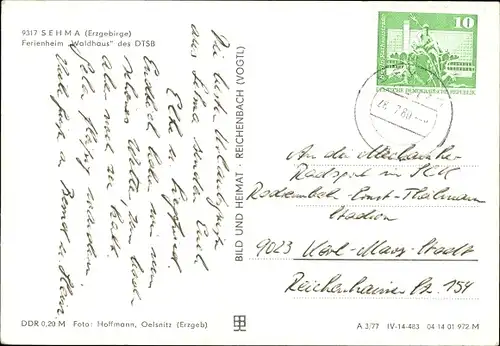 9317 SEHMA (Erzgebirge)
Ferienheim „Waldhaus" des DTSB
Die besten Urlaubsgrüße
aus Sehma senden Euch
Elke u. Siegfried
Endlich haben wir
schönes Wetter, zum
aber noch zu kalt.
Viele Grüße an Bernd u.
BILD UND HEIMAT · REICHENBACH (VOGTL)
10
DEUTSCHE DEMOKRATISCHE REPUBLIK
An die Mechaniker
Radsport im SCK
Radrennbahn Ernst-Thälmann
Stadion
9023 Karl-Marx-Stadt
Reichenhainer Str. 154
DDR 0,20 M Foto: Hoffmann, Oelsnitz (Erzgeb)
A 3/77 IV-14-483 04 14 01 972 M